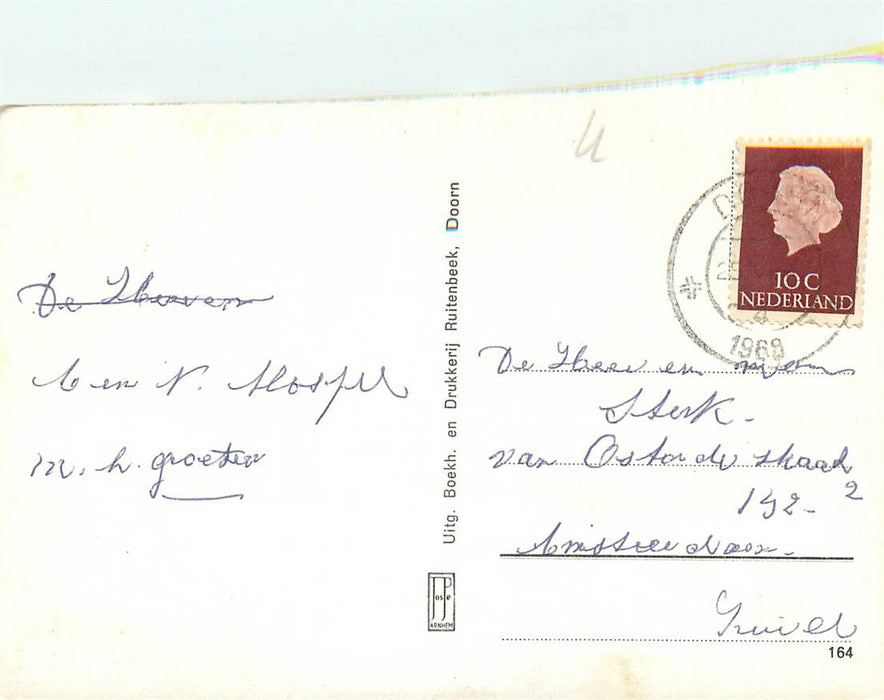 De Heer
en N.
m. h. groeten
Uitg. Boekh. en Drukkerij Ruitenbeek, Doorn
JP
os e
ARNHEM
10 C
NEDERLAND
1968
De Heer en
Sterk.
van Ostade straat
192- 2
Amsterdam.
Zuid
164